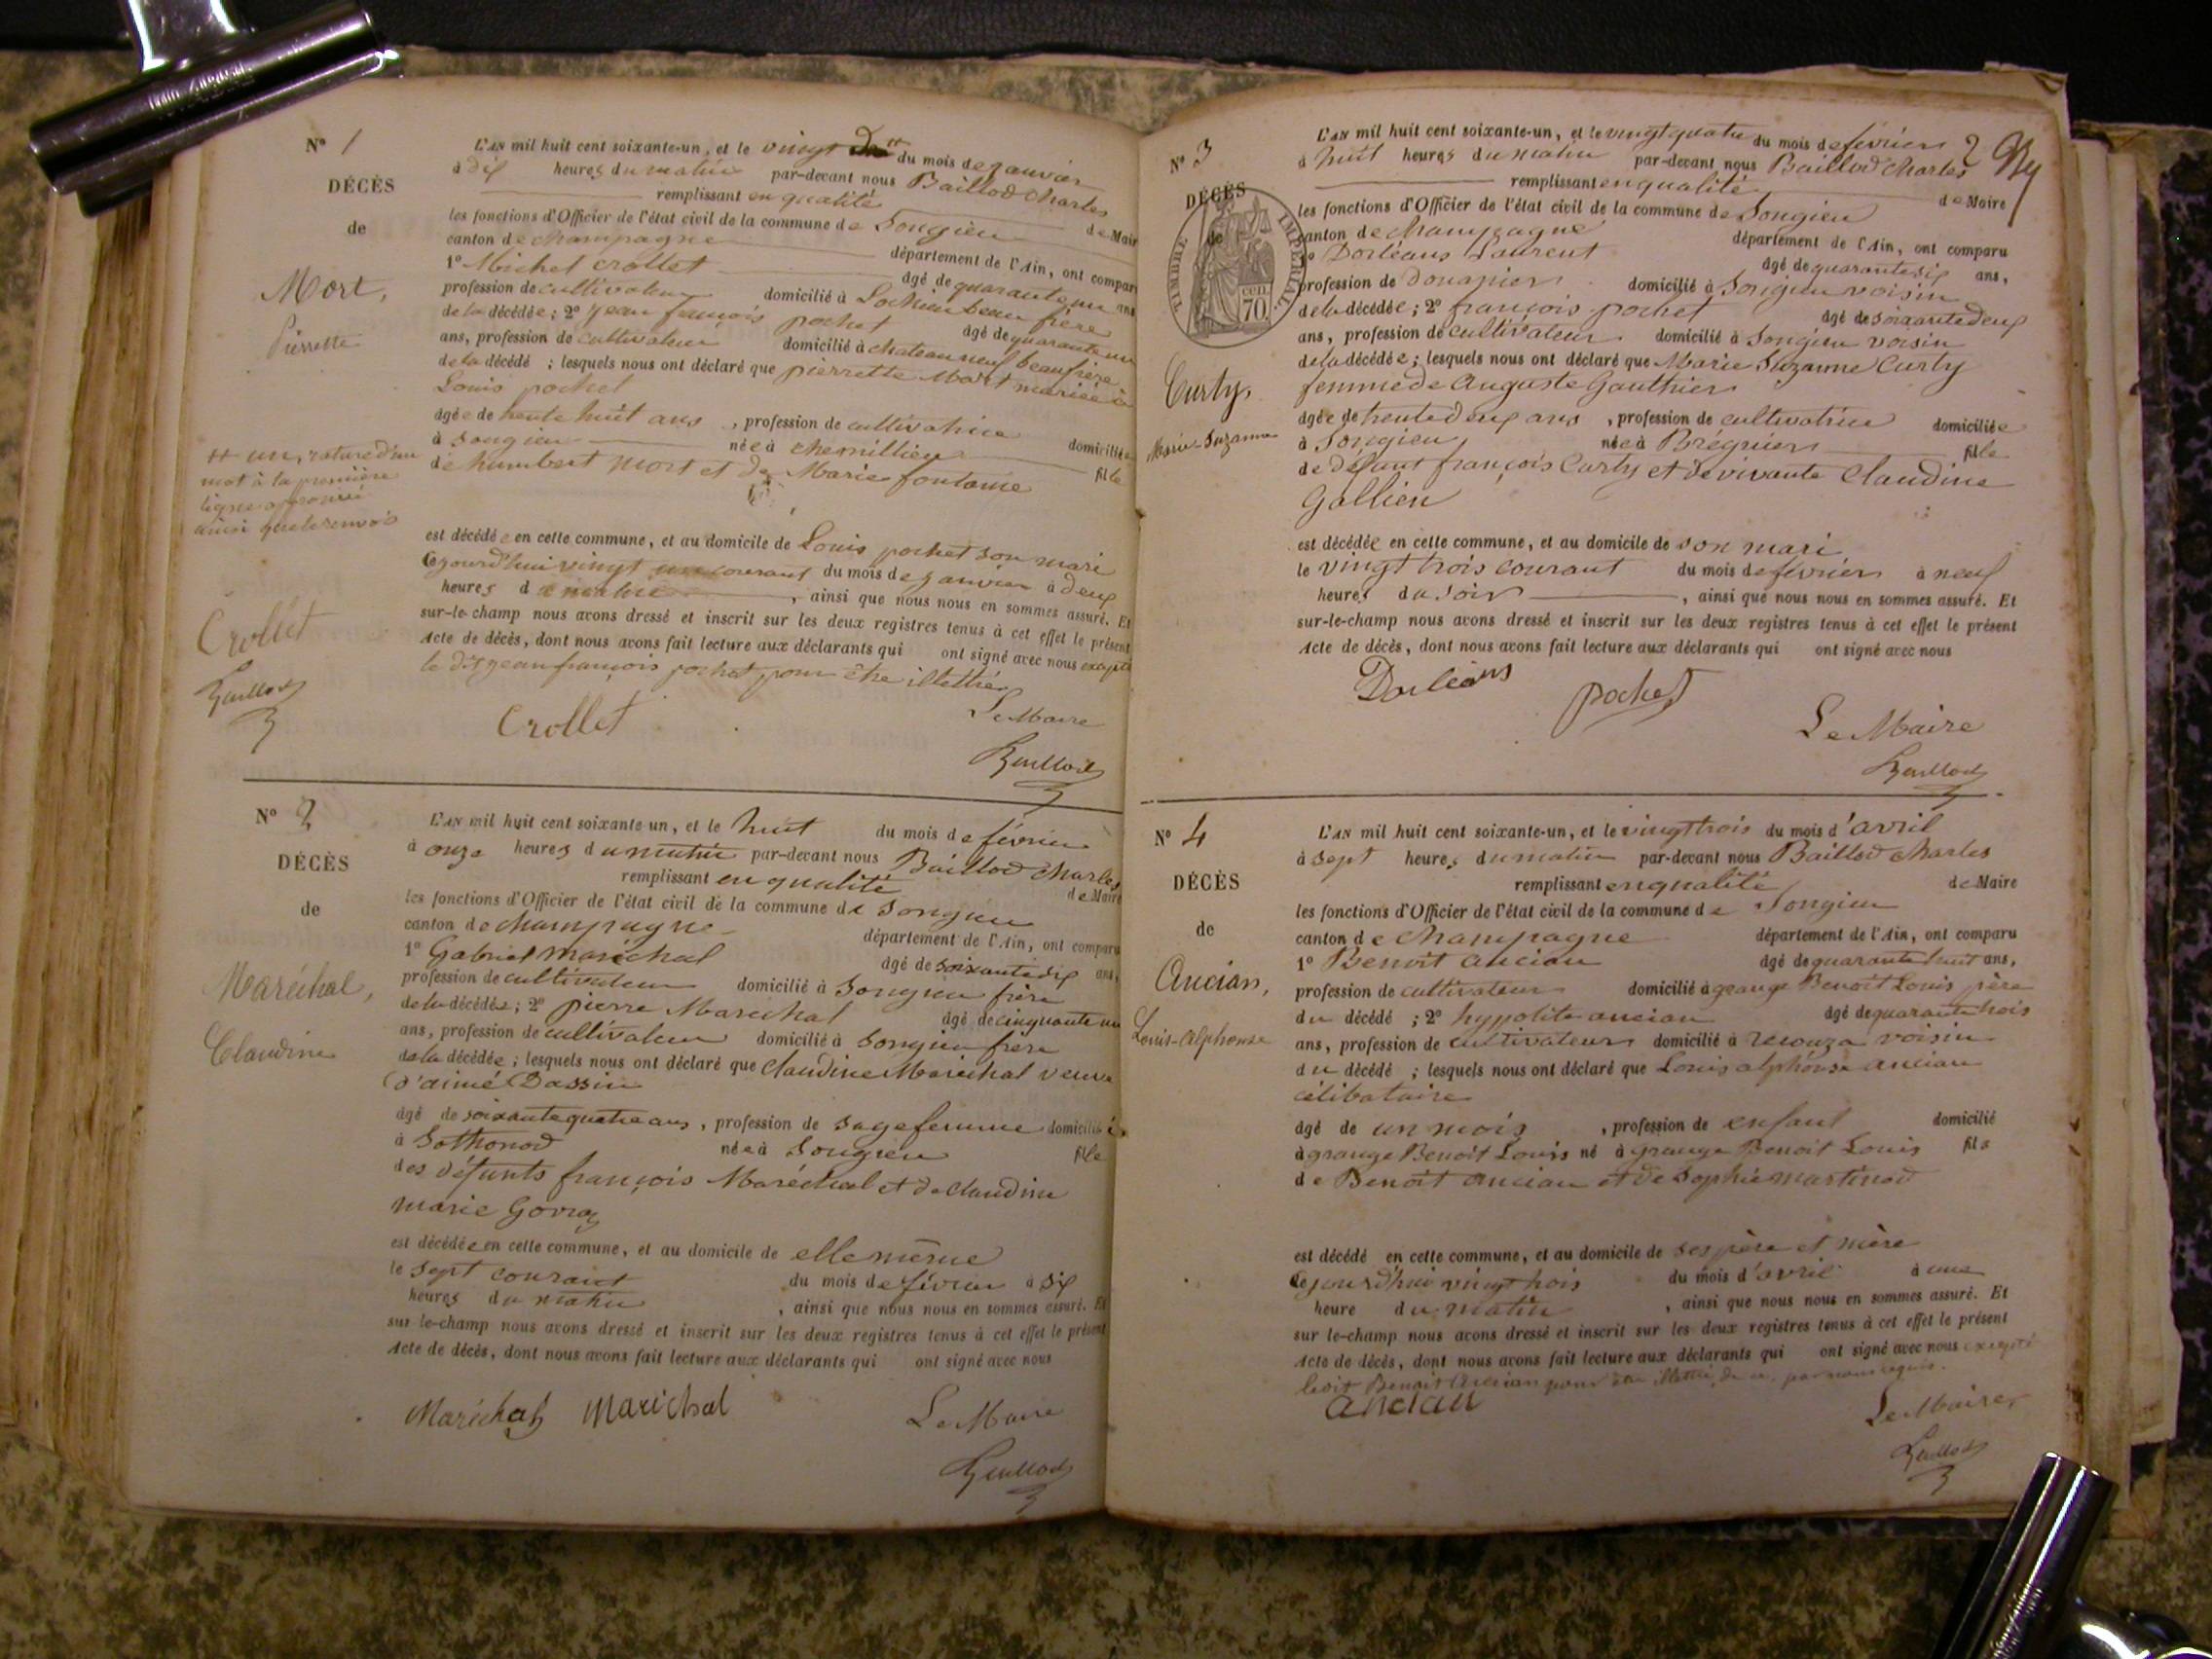 N° 1
DÉCÈS
de
Mort,
Pierrette
L'AN mil huit cent soixante-un, et le vingt du mois de janvier
à dix heures du matin par-devant nous Baillod Charles
remplissant en qualité de Maire
les fonctions d'Officier de l'état civil de la commune de Songieu
canton de champagne département de l'Ain, ont comparu
1° Michel Crollet âgé de quarante un ans
profession de cultivateur domicilié à Lochieu beau frère
de la décédée ; 2° jean françois pochet âgé de quarante un
ans, profession de cultivateur domicilié à chateauneuf beaufrère
de la décédé ; lesquels nous ont déclaré que pierrette Mort mariée à
Louis pochet
âgée de trente huit ans , profession de cultivatrice domiciliée
à Songieu née à chemillieu fille
de humbert mort et de Marie fontaine
est décédée en cette commune, et au domicile de Louis pochet son mari
Cejourd'hui vingt un courant du mois de janvier à deux
heures du matin , ainsi que nous nous en sommes assuré. Et
sur-le-champ nous avons dressé et inscrit sur les deux registres tenus à cet effet le présent
Acte de décès, dont nous avons fait lecture aux déclarants qui ont signé avec nous excepté
le dit jean françois pochet pour être illettré
un, rature d'un
mot à la première
ligne approuvé
ainsi que le renvoi
Crollet
Baillod
Crollet
Le Maire
Baillod
N° 2
DÉCÈS
de
Maréchal,
Claudine
L'AN mil huit cent soixante-un, et le huit du mois de février
à onze heures du matin par-devant nous Baillod Charles
remplissant en qualité de Maire
les fonctions d'Officier de l'état civil de la commune de Songieu
canton de champagne département de l'Ain, ont comparu
1° Gabriel maréchal âgé de soixante dix ans,
profession de cultivateur domicilié à Songieu frère
de la décédée ; 2° pierre Maréchal âgé de cinquante un
ans, profession de cultivateur domicilié à Songieu frère
de la décédée ; lesquels nous ont déclaré que Claudine Maréchal veuve
d'aimé Dassin
âgé de soixante quatre ans , profession de sage femme domicilié
à Sothonod née à Songieu fille
des défunts françois Maréchal et de claudine
marie
est décédée en cette commune, et au domicile de elle même
le sept courant du mois de février à six
heures du matin , ainsi que nous nous en sommes assuré. Et
sur le-champ nous avons dressé et inscrit sur les deux registres tenus à cet effet le présent
Acte de décès, dont nous avons fait lecture aux déclarants qui ont signé avec nous
Maréchal Maréchal
Le Maire
Baillod
2
N° 3
DÉCÈS
de
TIMBRE IMPÉRIAL
CEN. 70
Curty,
Marie-Suzanne
L'AN mil huit cent soixante-un, et le vingt quatre du mois de février
à huit heures du matin par-devant nous Baillod Charles
remplissant en qualité de Maire
les fonctions d'Officier de l'état civil de la commune de Songieu
canton de champagne département de l'Ain, ont comparu
1° Dorléans Laurent âgé de quarante six ans,
profession de douanier domicilié à Songieu voisin
de la décédée ; 2° françois pochet âgé de soixante deux
ans, profession de cultivateur domicilié à Songieu voisin
de la décédée ; lesquels nous ont déclaré que Marie Suzanne Curty
femme de Auguste Gauthier
âgée de trente deux ans , profession de cultivatrice domiciliée
à Songieu née à Brégnier fille
de défaut françois Curty et de vivante Claudine
Gallien
est décédée en cette commune, et au domicile de son mari
le vingt trois courant du mois de février à neuf
heures du soir , ainsi que nous nous en sommes assuré. Et
sur-le-champ nous avons dressé et inscrit sur les deux registres tenus à cet effet le présent
Acte de décès, dont nous avons fait lecture aux déclarants qui ont signé avec nous
Dorléans pochet
Le Maire
Baillod
N° 4
DÉCÈS
de
Ancian,
Louis-Alphonse
L'AN mil huit cent soixante-un, et le vingt trois du mois d'avril
à sept heures du matin par-devant nous Baillod Charles
remplissant en qualité de Maire
les fonctions d'Officier de l'état civil de la commune de Songieu
canton de Champagne département de l'Ain, ont comparu
1° Benoit ancian âgé de quarante huit ans,
profession de cultivateur domicilié à grange Benoit Louis père
du décédé ; 2° hypolite ancian âgé de quarante trois
ans, profession de cultivateur domicilié à voisin
du décédé ; lesquels nous ont déclaré que Louis alphonse ancian
célibataire
âgé de un mois , profession de enfant domicilié
à grange Benoit Louis né à grange Benoit Louis fils
de Benoit ancian et de Sophie martinod
est décédé en cette commune, et au domicile de ses père et mère
Cejourd'hui vingt trois du mois d'avril à une
heure du matin , ainsi que nous nous en sommes assuré. Et
sur le-champ nous avons dressé et inscrit sur les deux registres tenus à cet effet le présent
Acte de décès, dont nous avons fait lecture aux déclarants qui ont signé avec nous excepté
ledit Benoit Ancian pour être illettré, de ce par nous requis.
ancian
Le Maire
Baillod